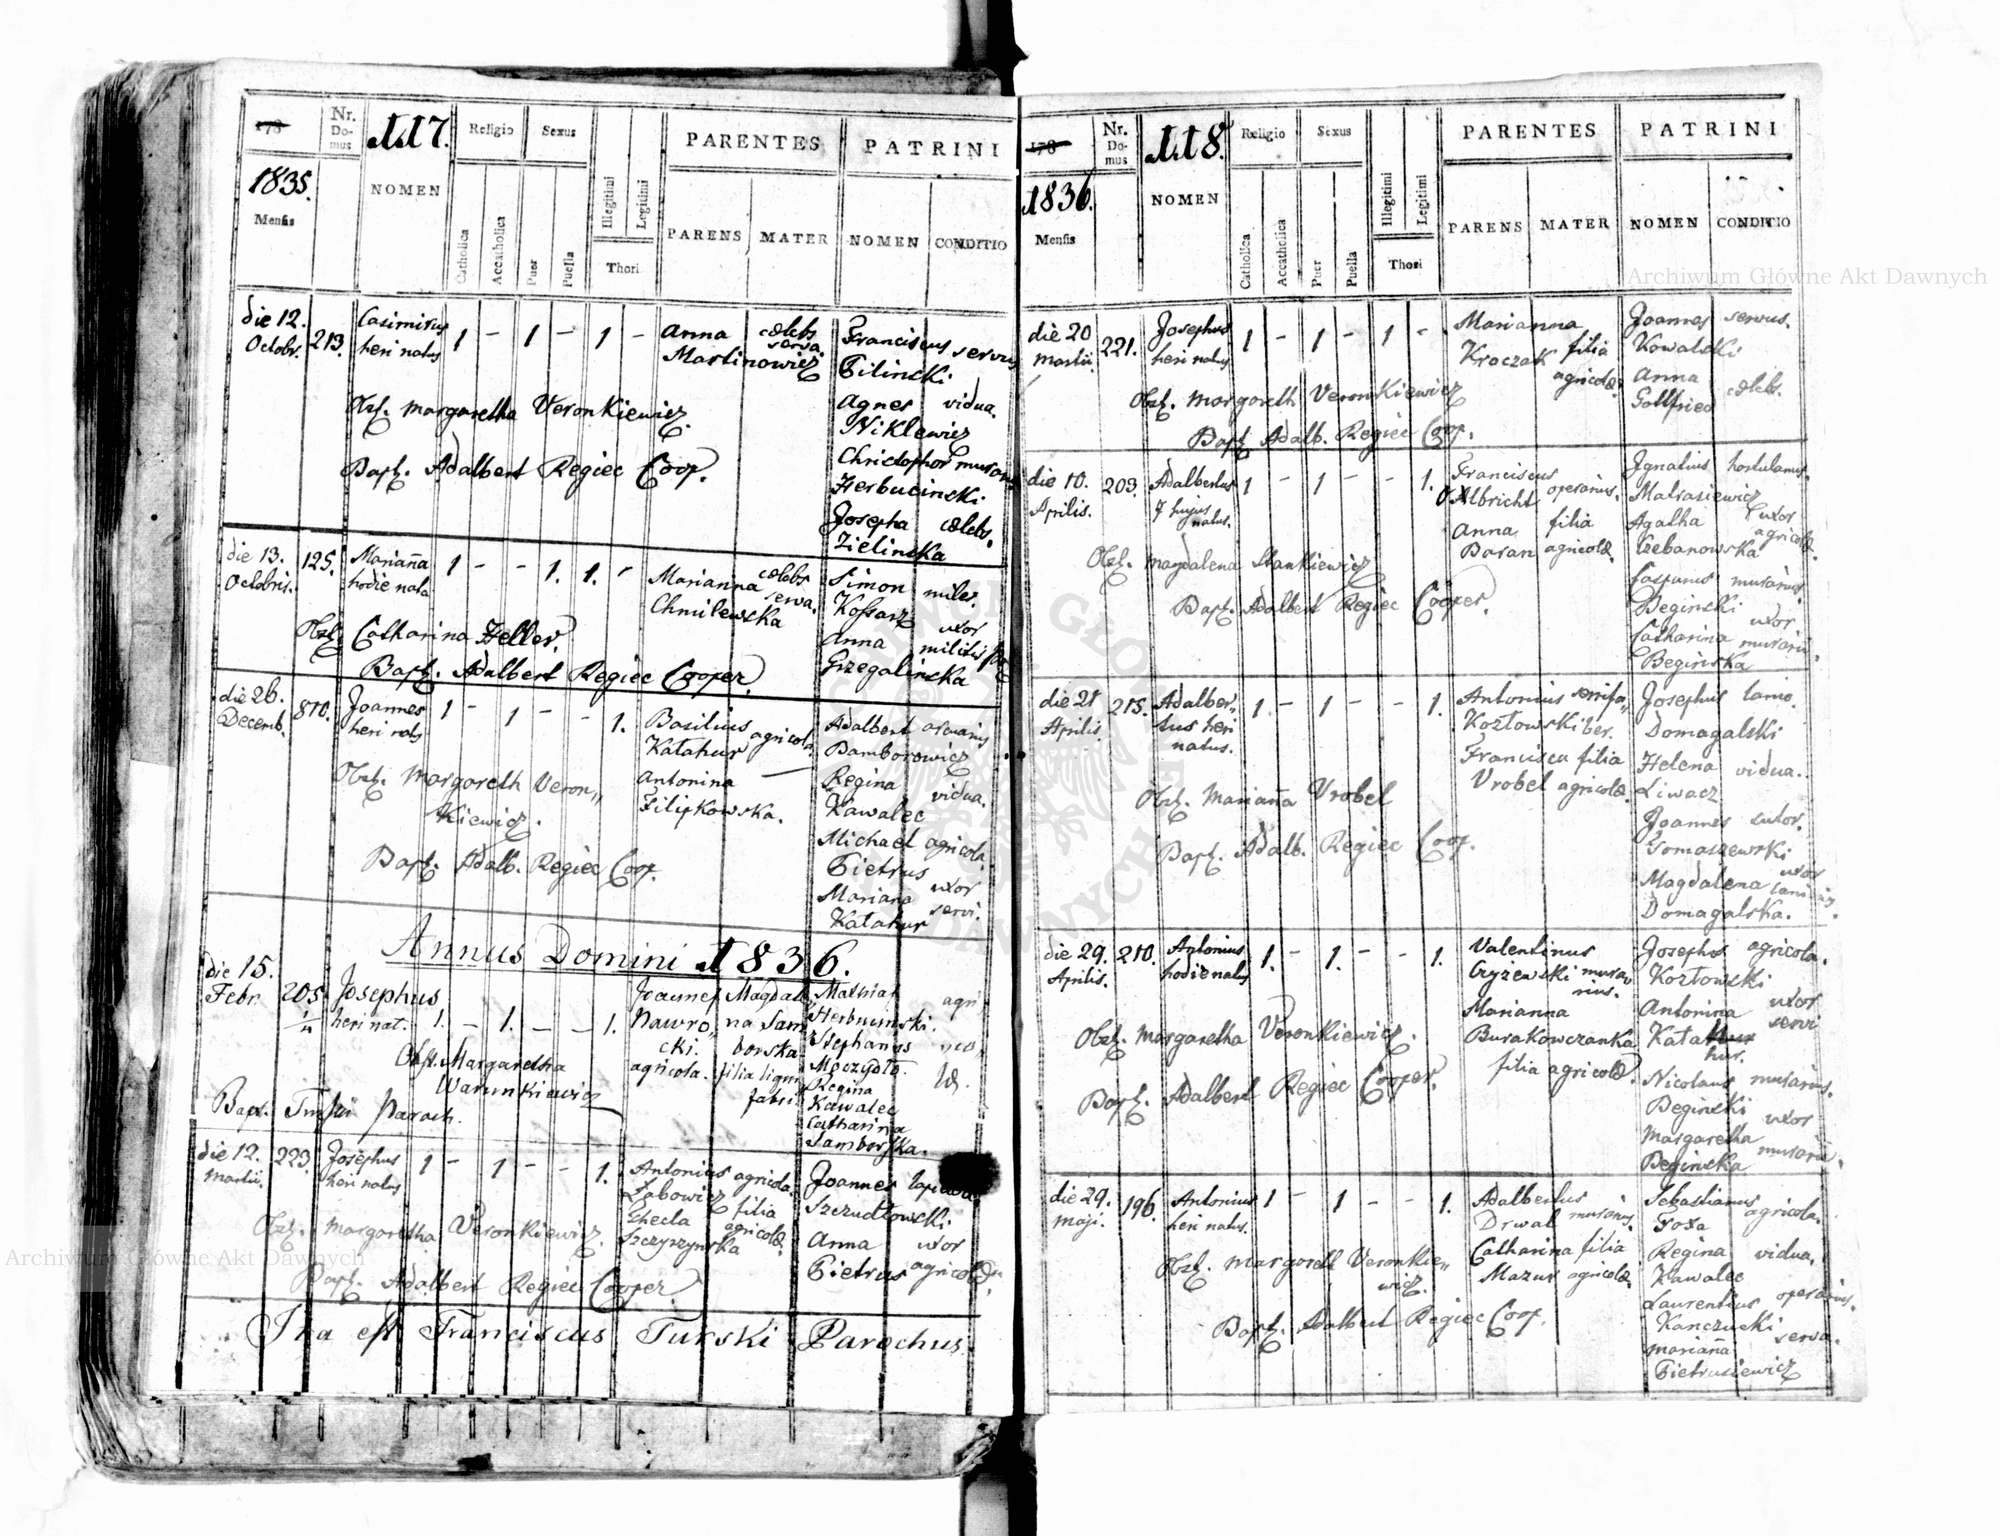 178
Nr. Do-mus
117.
Religio
Sexus
Illegitimi
Legitimi
PARENTES
PATRINI
1835.
Mensis
NOMEN
Catholica
Accatholica
Puer
Puella
Thori
PARENS
MATER
NOMEN
CONDITIO
die 12. Octobr.
213.
Casimirus heri natus
1 – 1 – 1 –
Anna cœlebs serva
Martinowicz
Franciscus servus
Pilincki
Agnes vidua.
Niklewicz
Christophor
Herbucinski
Josepha cœlebs.
Zielincka
Obst. Margaretha Veronkiewicz.
Bapt. Adalbert Regiec Coop.
die 13. Octobris.
125.
Marianna hodie nata
1 – – 1. 1. –
Marianna cœlebs serva.
Chmilewska
Simon miles.
Kossarz
Anna uxor militis
Grzegalincka
Obst. Catharina Heller.
Bapt. Adalbert Regiec Cooper.
die 26. Decemb.
810.
Joannes heri nats
1 – 1 – – 1.
Basilius agricola
Katahur
Antonina
Filipkowska.
Adalbert
Bamborowicz
Regina vidua.
Kawalec
Michael agricola.
Pietrus
Mariana uxor servi.
Katahur
Obst. Margareth Veron„
kiewicz.
Bapt. Adalb. Regiec Coop.
Annus Domini 1836.
die 15. Febr.
205.
Josephus heri nat.
1. – 1. – – 1.
Joannes Nawro,
cki. agricola.
Magdale
na Sam
borska
filia lign
fabri
Mathias
Herbucinski.
Stephanus
Moczydło.
Regina
Kawalec
Catharina
Samborska.
Obst. Margaretha
Warunkiewicz
Bapt. Turski Paroch.
die 12. Martii.
223.
Josephus heri natus
1 – 1 – – 1.
Antonius agricola
Labowicz
Thecla filia agricolæ
Szczyszynska
Joannes
Szczudłowski.
Anna uxor
Pietrus agricolæ.
Obst. Margaretha Veronkiewicz.
Bapt. Adalbert Regiec Cooper
Ita est Franciscus Turski Parochus.
178
Nr. Do-mus
118.
Religio
Sexus
Illegitimi
Legitimi
PARENTES
PATRINI
1836.
Mensis
NOMEN
Catholica
Accatholica
Puer
Puella
Thori
PARENS
MATER
NOMEN
CONDITIO
die 20 Martii.
221.
Josephus heri natus
1 – 1 – 1 –
Marianna
Kroczak filia agricolæ.
Joannes servus.
Kowalski
Anna cœlebs.
Gottfried
Obst. Margareth Veronkiewicz
Bapt. Adalb. Regiec Coop.
die 10. Aprilis.
203.
Adalbertus 7 hujus natus.
1 – 1 – – 1.
Franciscus
Olbricht operarius.
Anna filia
Baran agricolæ.
Ignatius hortulanus.
Matrasiewicz
Agatha uxor agricolæ.
Czebanowska
Casparus murarius.
Begincki
Catharina uxor murarii.
Beginska
Obst. Magdalena Stankiewicz
Bapt. Adalbert Regiec Cooper.
die 21 Aprilis
215.
Adalber„ tus heri natus.
1. – 1 – – 1.
Antonius serrifa„
Kozłowski ber.
Francisca filia
Vrobel agricolæ.
Josephus lanio.
Domagalski
Helena vidua.
Liwacz
Joannes sutor.
Tomaszewski
Magdalena uxor
Domagalska.
Obst. Marianna Vrobel
Bapt. Adalb. Regiec Coop.
die 29. Aprilis.
210.
Antonius hodie natus
1. – 1. – – 1.
Valentinus
Cryzewski mura„
rius.
Marianna
Burakowczanka
filia agricolæ.
Josephus agricola.
Kozłowski
Antonina uxor servi
Kata
hur.
Nicolaus murarius.
Begincki
Margaretha uxor murarii.
Begincka
Obst. Margaretha Veronkiewicz.
Bapt. Adalbert Regiec Cooper.
die 29. Maji.
196.
Antonius heri natus.
1 – 1 – – 1.
Adalbertus
Drwal murarius.
Catharina filia
Mazur agricolæ
Sebastianus agricola.
Regina vidua.
Kawalec
Laurentius operarius.
Kanczucki
Marianna serva.
Pietrusiewicz
Obst. Margareth Veronkie„
wicz.
Bapt. Adalbert Regiec Coop.
Archiwum Główne Akt Dawnych
Archiwum Główne Akt Dawnych